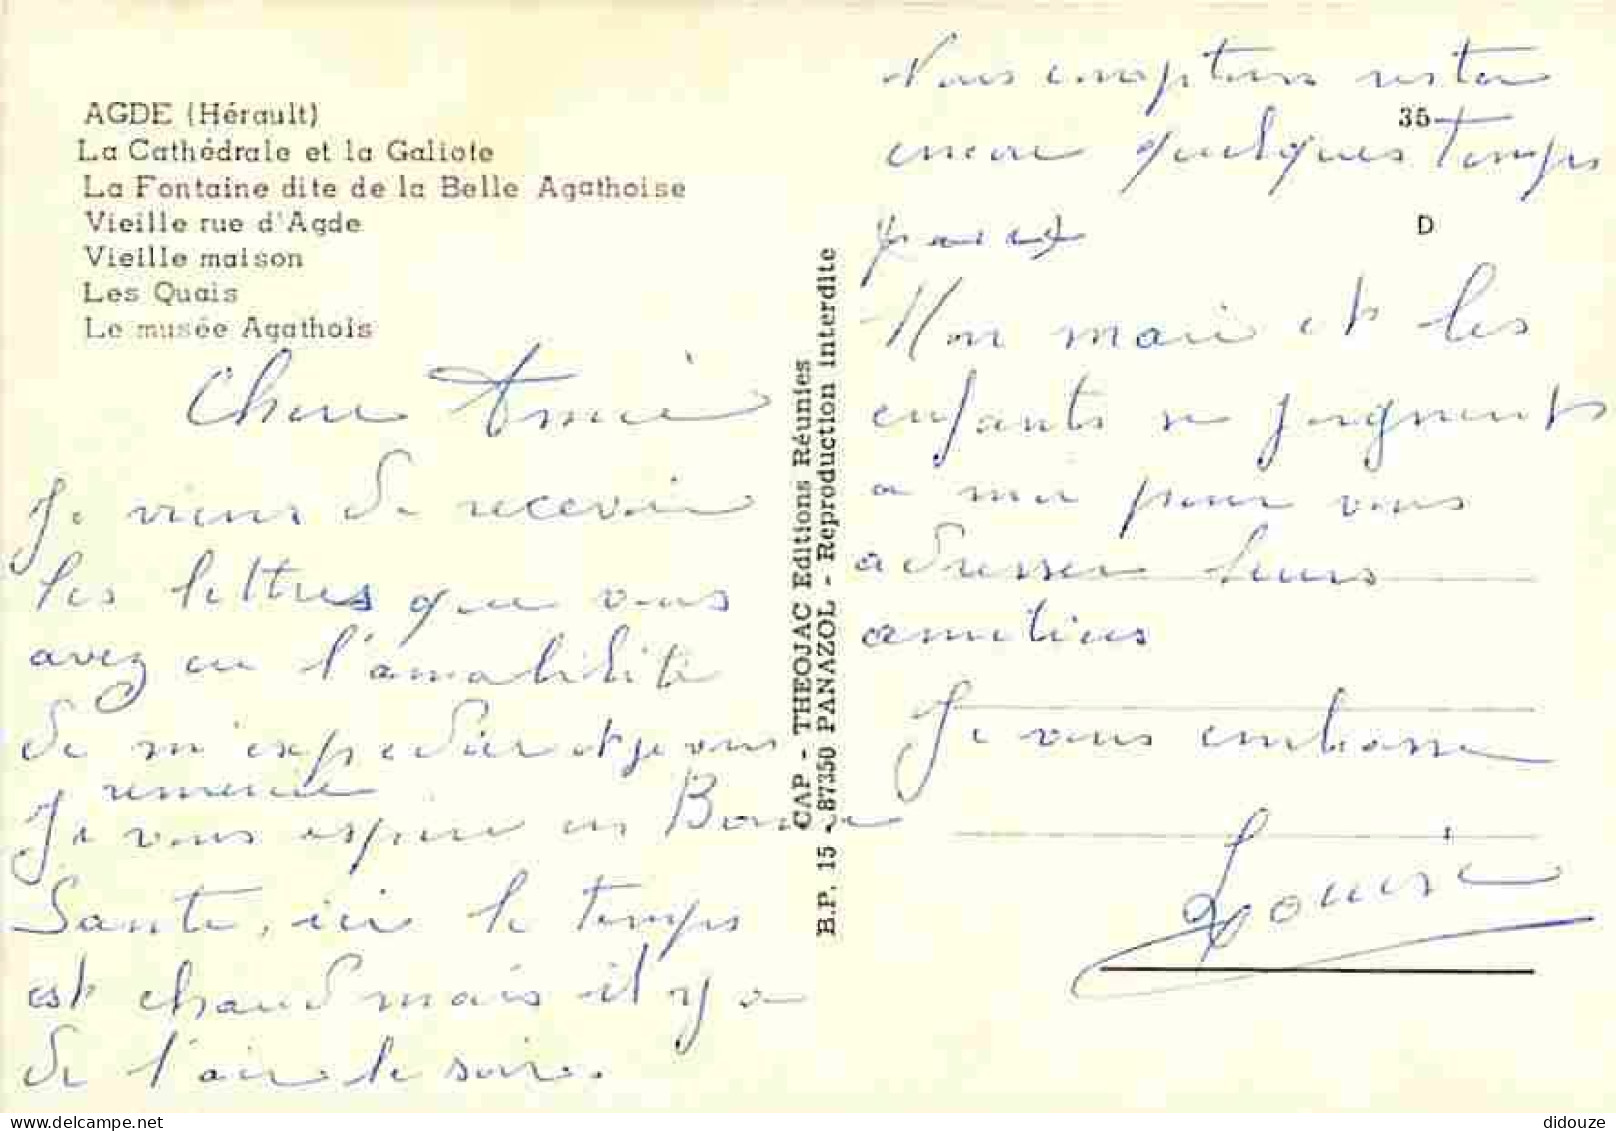 AGDE (Hérault)
La Cathédrale et la Galiote
La Fontaine dite de la Belle Agathoise
Vieille rue d'Agde
Vieille maison
Les Quais
Le musée Agathois
Chere Amie
Je viens de recevoir
les lettres que vous
avez eu l'amabilité
de m'expedier et je vous
remercie
Je vous espere en Bonne
Santé, ici le temps
est chaud mais il y a
de l'air le soir.
CAP - THEOJAC Editions Réunies
B.P. 15 - 87350 PANAZOL - Reproduction interdite
35
D
Nous comptons rester
encore quelques temps
Mon mari et les
enfants se joignent
a moi pour vous
adresser leurs
amitiés
Je vous embrasse
Louise
didouze